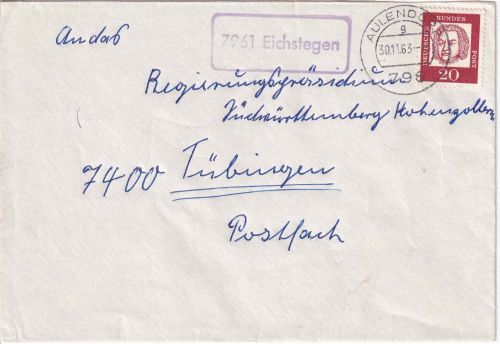 An das
7961 Eichstegen
AULENDO
g
30.11.63
798
DEUTSCHE BUNDESPOST
20
Regierungspräsidium
Südwürttemberg Hohenzollern
7400 Tübingen
Postfach